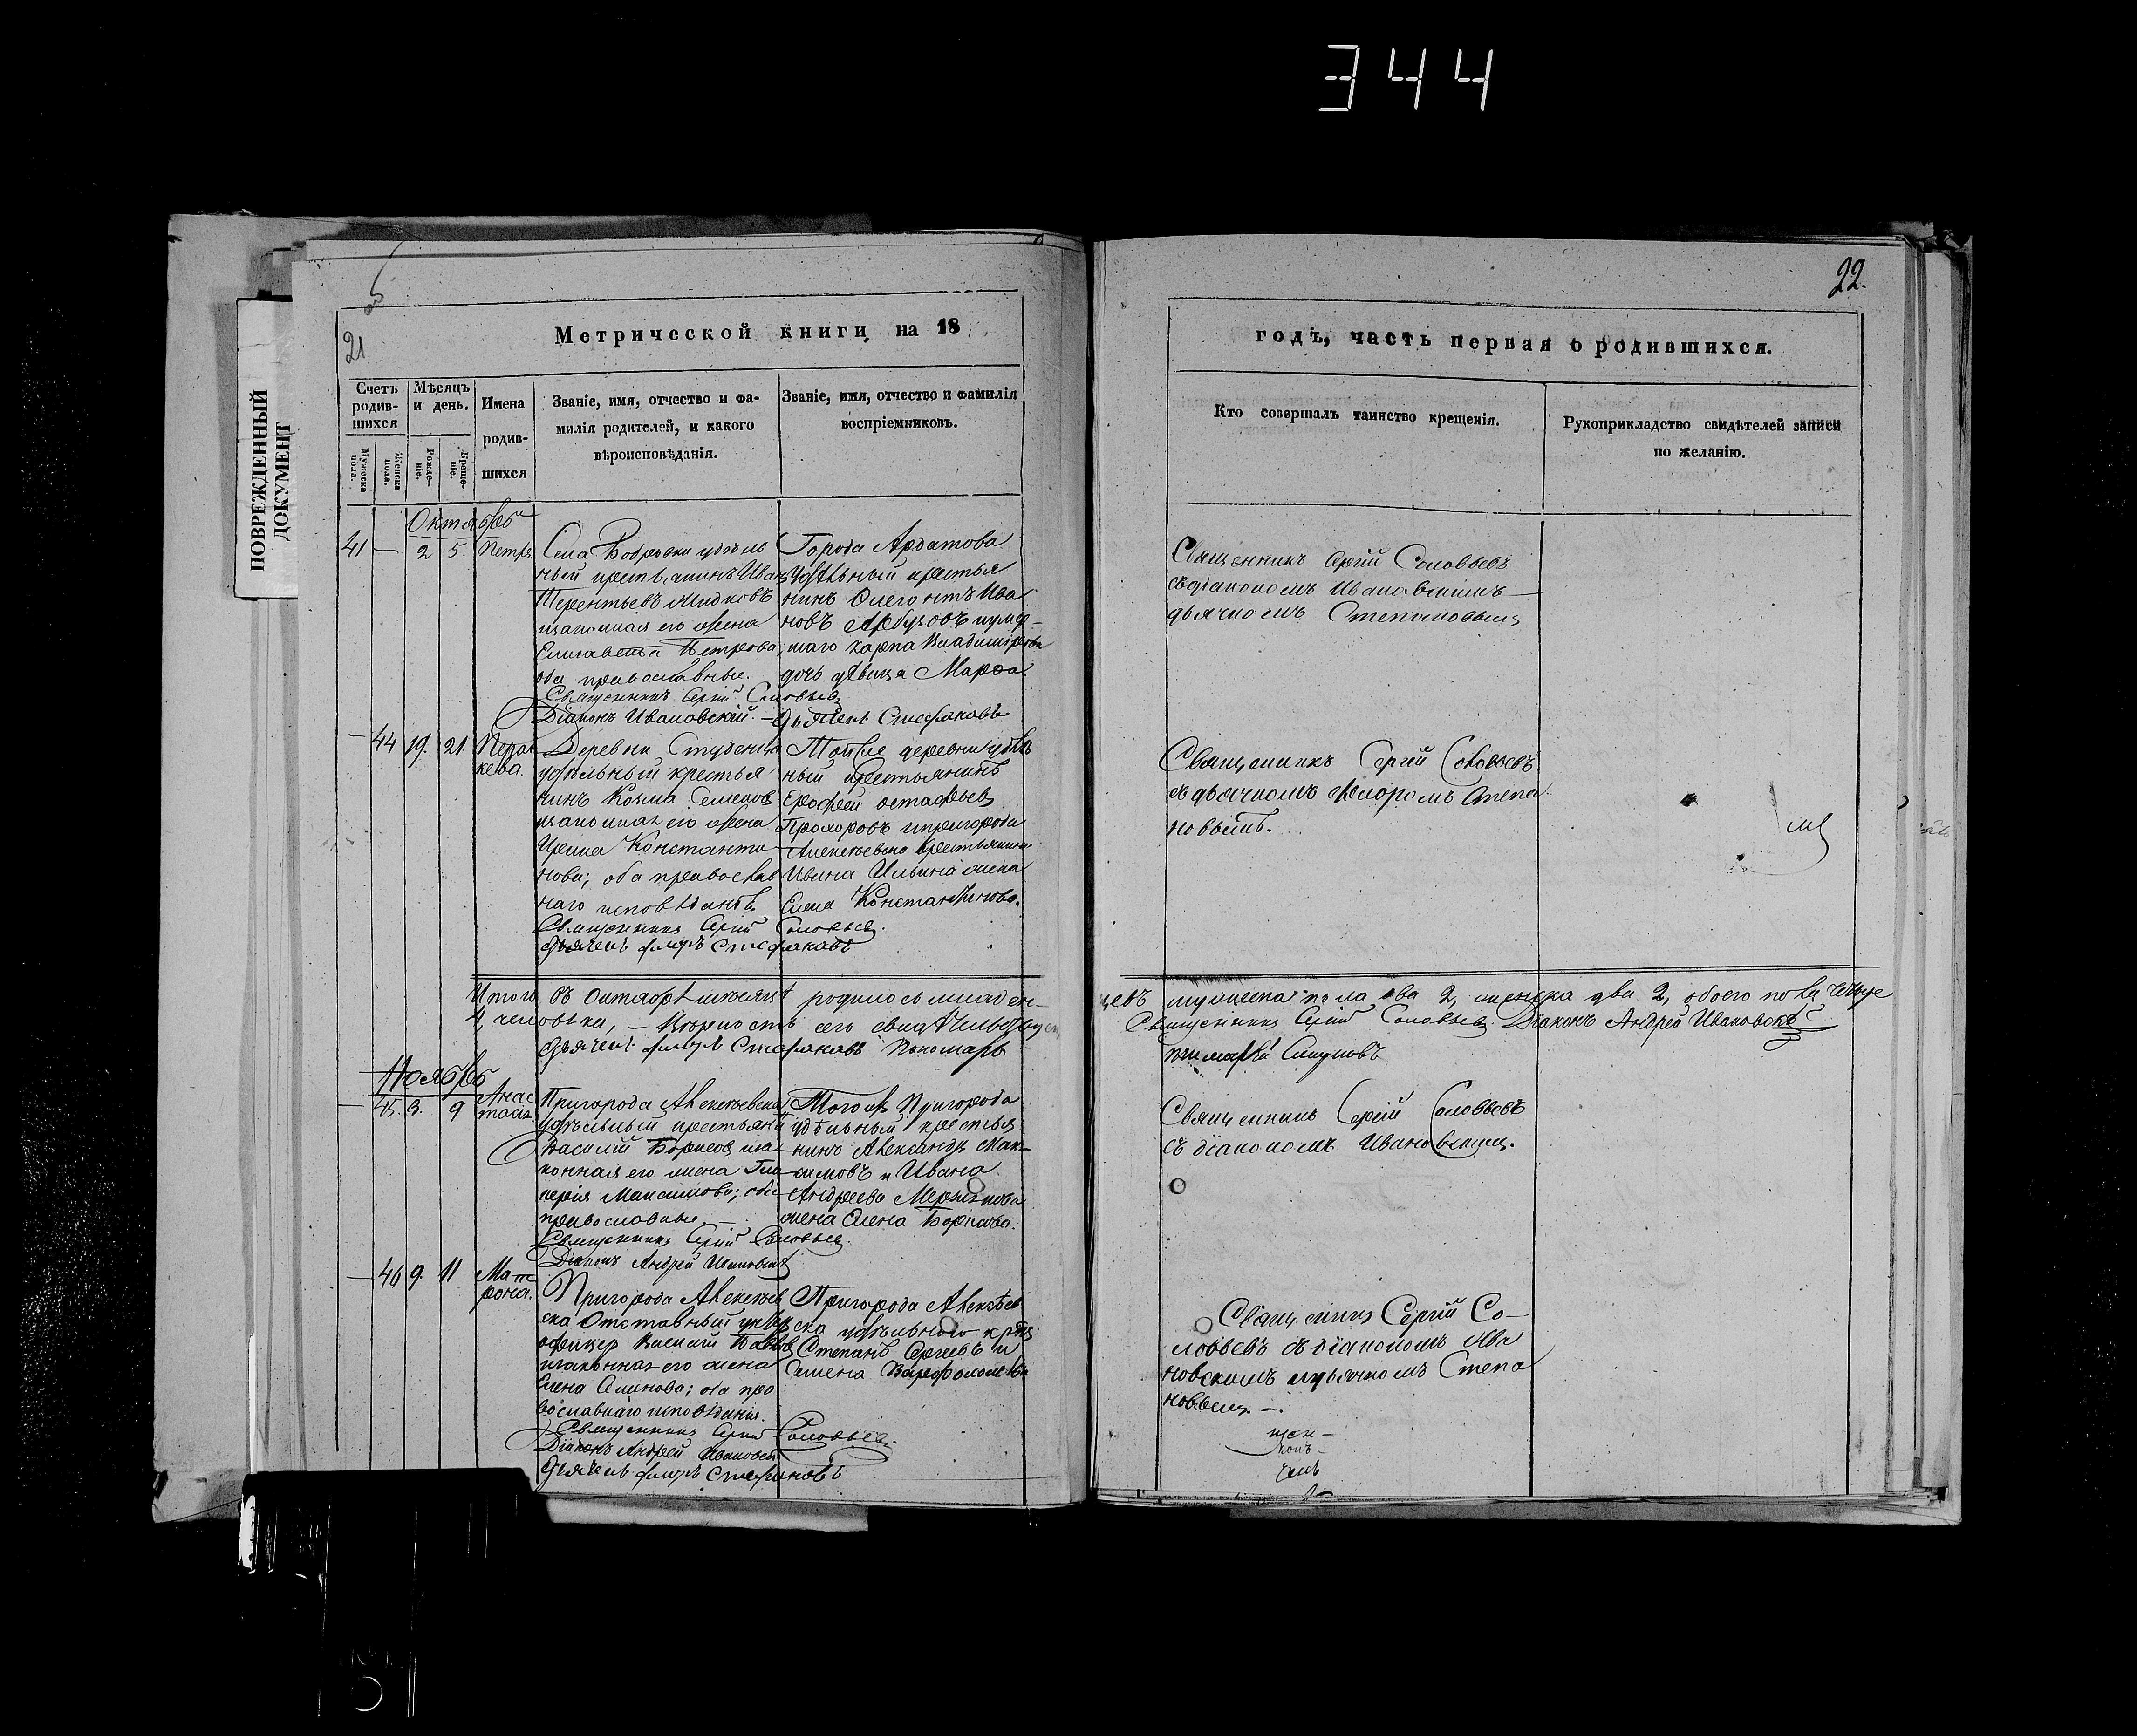 344
ПОВРЕЖДЕННЫЙ
ДОКУМЕНТ
21
Метрической книги на 18
Счетъ родив-шихся
Мѣсяцъ и день.
Имена родив-шихся
Званіе, имя, отчество и фа-
милія родителей, и какого
вѣроисповѣданія.
Званіе, имя, отчество и фамилія
воспріемниковъ.
Мужеска пола.
Женска пола.
Рожде-ніе.
Креще-ніе.
Октябрь
41 — 2 5. Петръ
Села Бобровки удѣль
ный крестьянинъ Иванъ
Терентьевъ Жидковъ
изаконная его жена
Елизавета Петрова
оба православные.
Священникъ Сергій Соловьевъ
Діаконъ Ивановскій. — Дьячекъ Стефановъ
Города Ардатова
удѣльный крестья
нинъ Ива
новъ Арбузовъ
Карпа Владимірова
дочь дѣвица Марѳа
— 44 19. 21. Парас
кева.
Деревни Студенца
удѣльный крестья
нинъ Козма Семенов
изаконная его жена
Ирина Константи
нова; оба православ
наго исповѣданія
Священникъ Сергій Соловьевъ.
Дьячекъ Стефановъ
Тойже деревни удѣль
ный крестьянинъ
Ерофей Остафьевъ
Прохоровъ ипригорода
Алексѣевска крестьянина
Ивана Ильина жена
Елена Константинова.
Итого въ Октябрѣ мѣсяцѣ родилось младен-
4, человѣка, —
Дьячекъ Стефановъ Пономарь
Ноябрь
— 45. 3. 9 Анас
тасія
Пригорода Алексѣевска
удѣльный крестьянин
Василій Борисов иза
конная его жена Гли
керія Максимова; оба
православные. —
Священникъ Сергій Соловьевъ.
Діаконъ Андрей Ивановскій
Тогоже Пригорода
удѣльный крестья
нинъ Александръ Мак-
симовъ и Ивана
Андреева
жена Елена Борисова.
— 46 9. 11 Мат
рона.
Пригорода Алексѣев
ска Отставный унтеръ
офицер Василій
изаконная его жена
Елена Семенова; оба пра
вославнаго исповѣданія.
Священникъ Сергій Соловьевъ.
Діаконъ Андрей Ивановскій
Дьячекъ Стефановъ
Пригорода Алексѣев
ска удѣльного
Степанъ Сергеевъ и
22.
годъ, часть первая о родившихся.
Кто совершалъ таинство крещенія.
Рукоприкладство свидѣтелей записи
по желанію.
Священникъ Сергій Соловьевъ
съ діакономъ Ивановскимъ
дьячкомъ Степановымъ
Священникъ Сергій Соловьевъ
съ дьячкомъ Степа
новымъ.
цевъ мужеска пола два 2, женска два 2, обоего пола четыре
Священникъ Сергій Соловьевъ. Діаконъ Андрей Ивановскій
Священникъ Сергій Соловьевъ
съ діакономъ Ивановскимъ.
Священникъ Сергій Со-
ловьевъ съ діакономъ Ива
новскимъ идьячкомъ Степа
новымъ —.